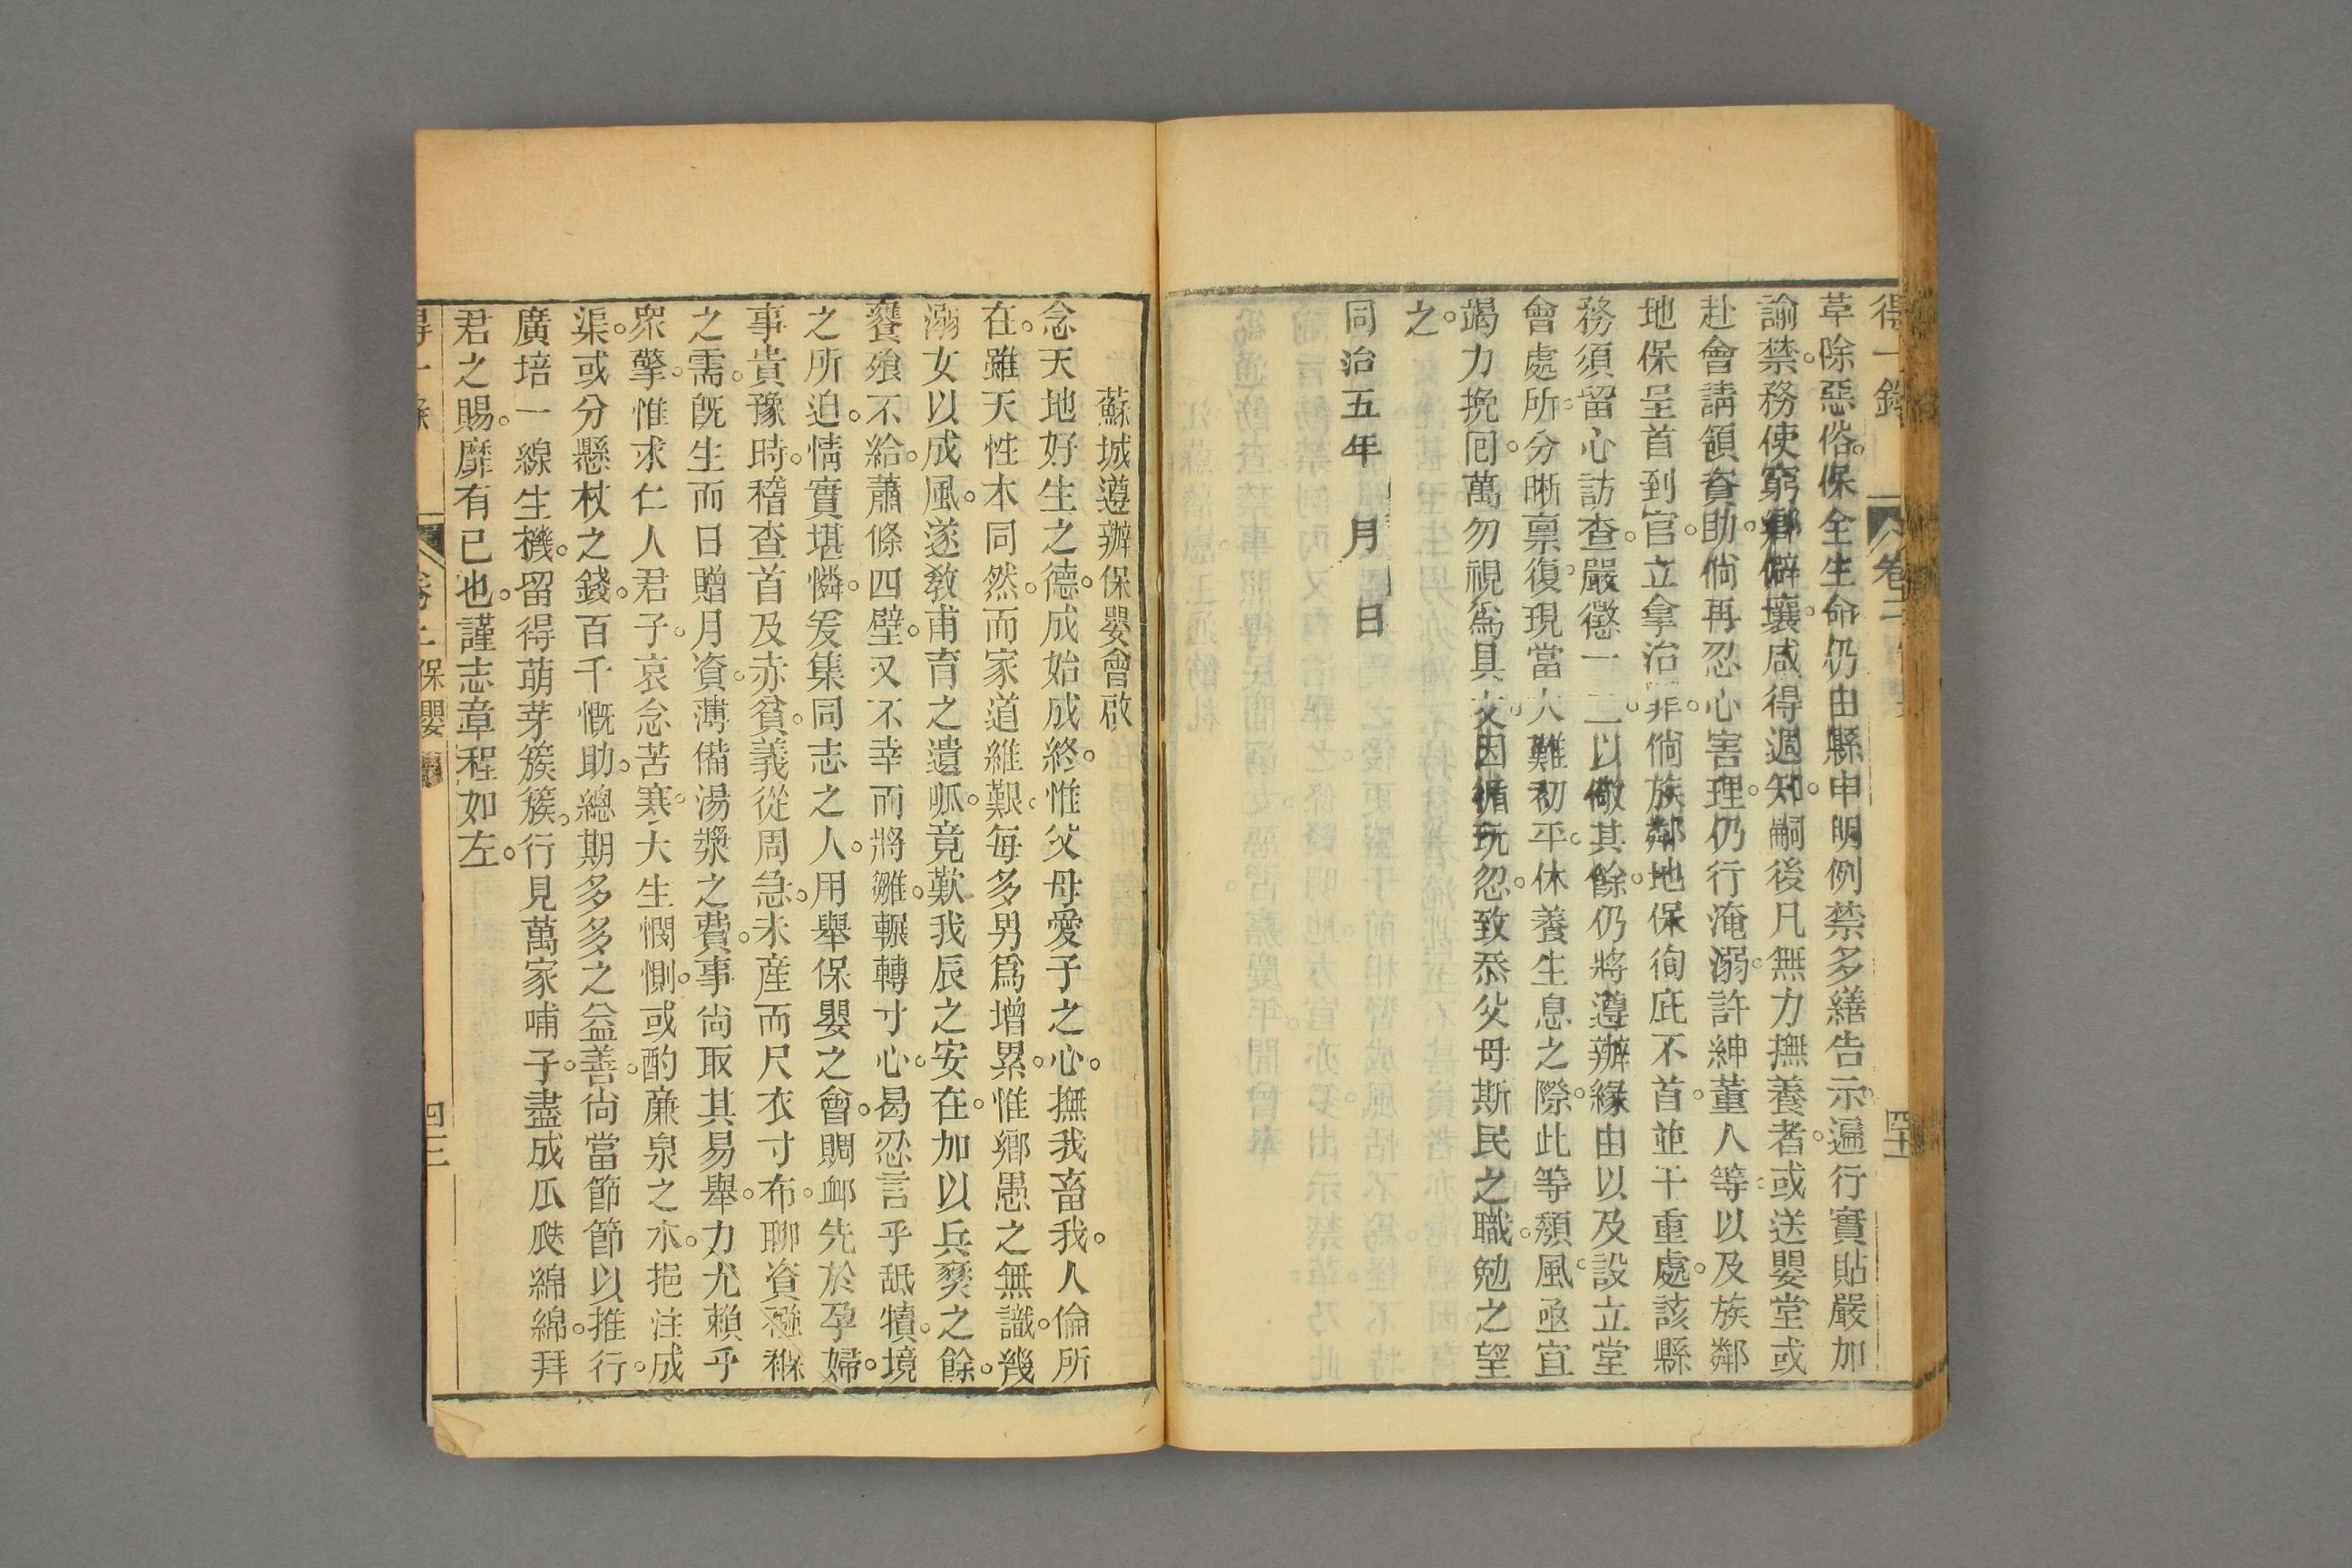 得一錄 卷二 四十二
草除惡俗。保全生命仍由縣申明例禁多繕告示。遍行實貼嚴加
諭禁。務使窮鄉僻壤。咸得週知。嗣後凡無力撫養者。或送嬰堂或
赴會請領資助。倘再忍心害理。仍行淹溺。許紳董人等。以及族鄰
地保呈首到官。立拿治罪。倘族鄰地保徇庇不首。並干重處。該縣
務須留心訪查。嚴懲一二。以儆其餘。仍將遵辦緣由以及設立堂
會處所。分晰稟復。現當大難初平。休養生息之際。此等頹風。亟宜
竭力挽囘。萬勿視爲具文。因循玩忽。致忝父母斯民之職。勉之望
之。
同治五年 月 日
蘇城遵辦保嬰會啟
念天地好生之德。成始成終。惟父母愛子之心。撫我畜我。人倫所
在。雖天性本同然。而家道維艱。每多男爲增累。惟鄉愚之無識。幾
溺女以成風。遂敎甫育之遺呱。竟歎我辰之安在。加以兵燹之餘。
饔飧不給。蕭條四壁。又不幸而將雛。輾轉寸心。曷忍言乎舐犢。境
之所迫。情實堪憐。爰集同志之人。用舉保嬰之會。賙䘏先於孕婦。
事貴豫時。稽查首及赤貧。義從周急。未產而尺衣寸布。聊資襁褓
之需。旣生而日贈月資。薄備湯漿之費。事尙取其易舉。力尤賴乎
眾擎。惟求仁人君子。哀念苦寒。大生憫惻。或酌亷泉之水。挹注成
渠。或分懸杖之錢。百千慨助。總期多多之益善。尙當節節以推行。
廣培一線生機。留得萌芽簇簇。行見萬家哺子。盡成瓜瓞綿綿。拜
君之賜。靡有已也。謹志章程如左。
得一錄 卷二 保嬰 四三